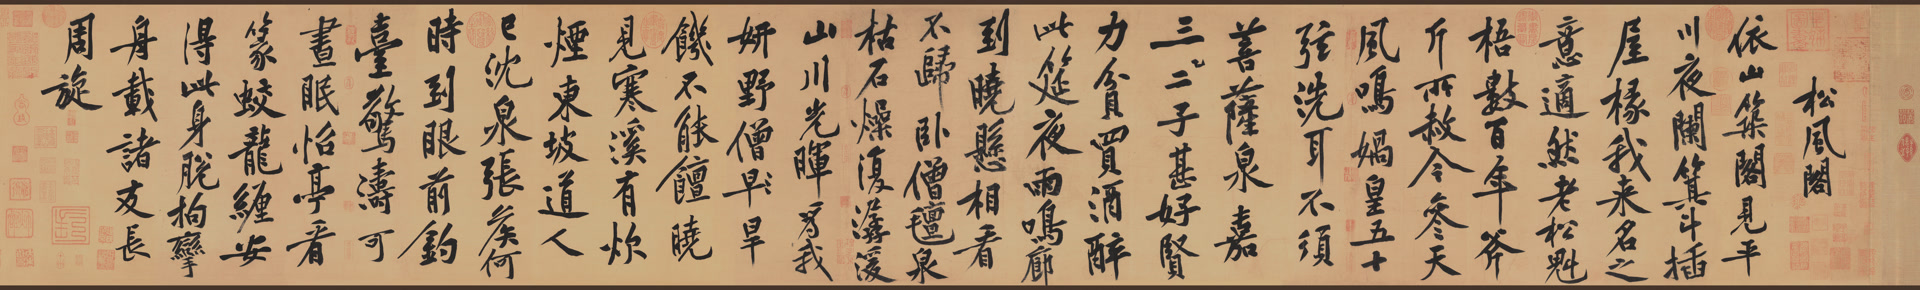 松風閣
依山築閣見平
川夜闌箕斗插
屋椽我来名之
意適然老松魁
梧數百年斧
斤所赦令參天
風鳴媧皇五十
弦洗耳不須
菩薩泉嘉
三二子甚好賢
力貧買酒醉
此筵夜雨鳴廊
到曉懸相看
不歸卧僧氈泉
枯石燥復潺湲
山川光暉為我
妍野僧早旱
饑不能饘曉
見寒溪有炊
煙東坡道人
已沈泉張侯何
時到眼前釣
臺驚濤可
晝眠怡亭看
篆蛟龍纏安
得此身脫拘攣
舟載諸友長
周旋